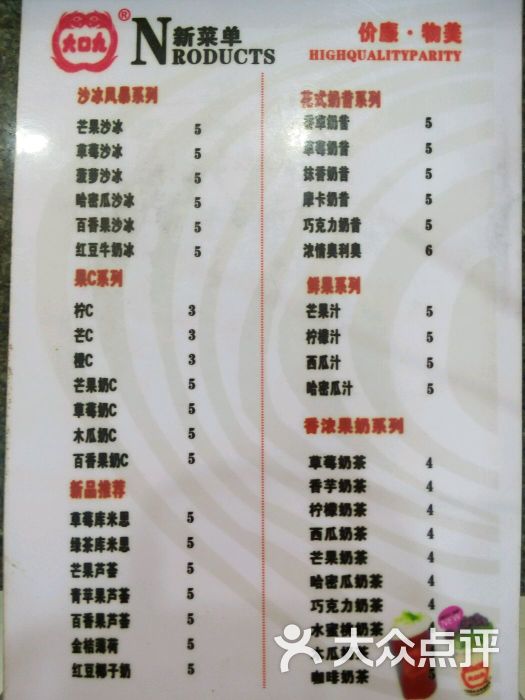 大口九®
新菜单
NRODUCTS
价廉·物美
HIGHQUALITYPARITY
沙冰风暴系列
芒果沙冰 5
草莓沙冰 5
菠萝沙冰 5
哈密瓜沙冰 5
百香果沙冰 5
红豆牛奶冰 5
果C系列
柠C 3
芒C 3
橙C 3
芒果奶C 5
草莓奶C 5
木瓜奶C 5
百香果奶C 5
新品推荐
草莓库米思 5
绿茶库米思 5
芒果芦荟 5
青苹果芦荟 5
百香果芦荟 5
金桔薄荷 5
红豆椰子奶 5
花式奶昔系列
香草奶昔 5
草莓奶昔 5
抹香奶昔 5
摩卡奶昔 5
巧克力奶昔 5
浓情奥利奥 6
鲜果系列
芒果汁 5
柠檬汁 5
西瓜汁 5
哈密瓜汁 5
香浓果奶系列
草莓奶茶 4
香芋奶茶 4
柠檬奶茶 4
西瓜奶茶 4
芒果奶茶 4
哈密瓜奶茶 4
巧克力奶茶 4
水蜜桃奶茶
木瓜奶茶
咖啡奶茶 5
大众点评